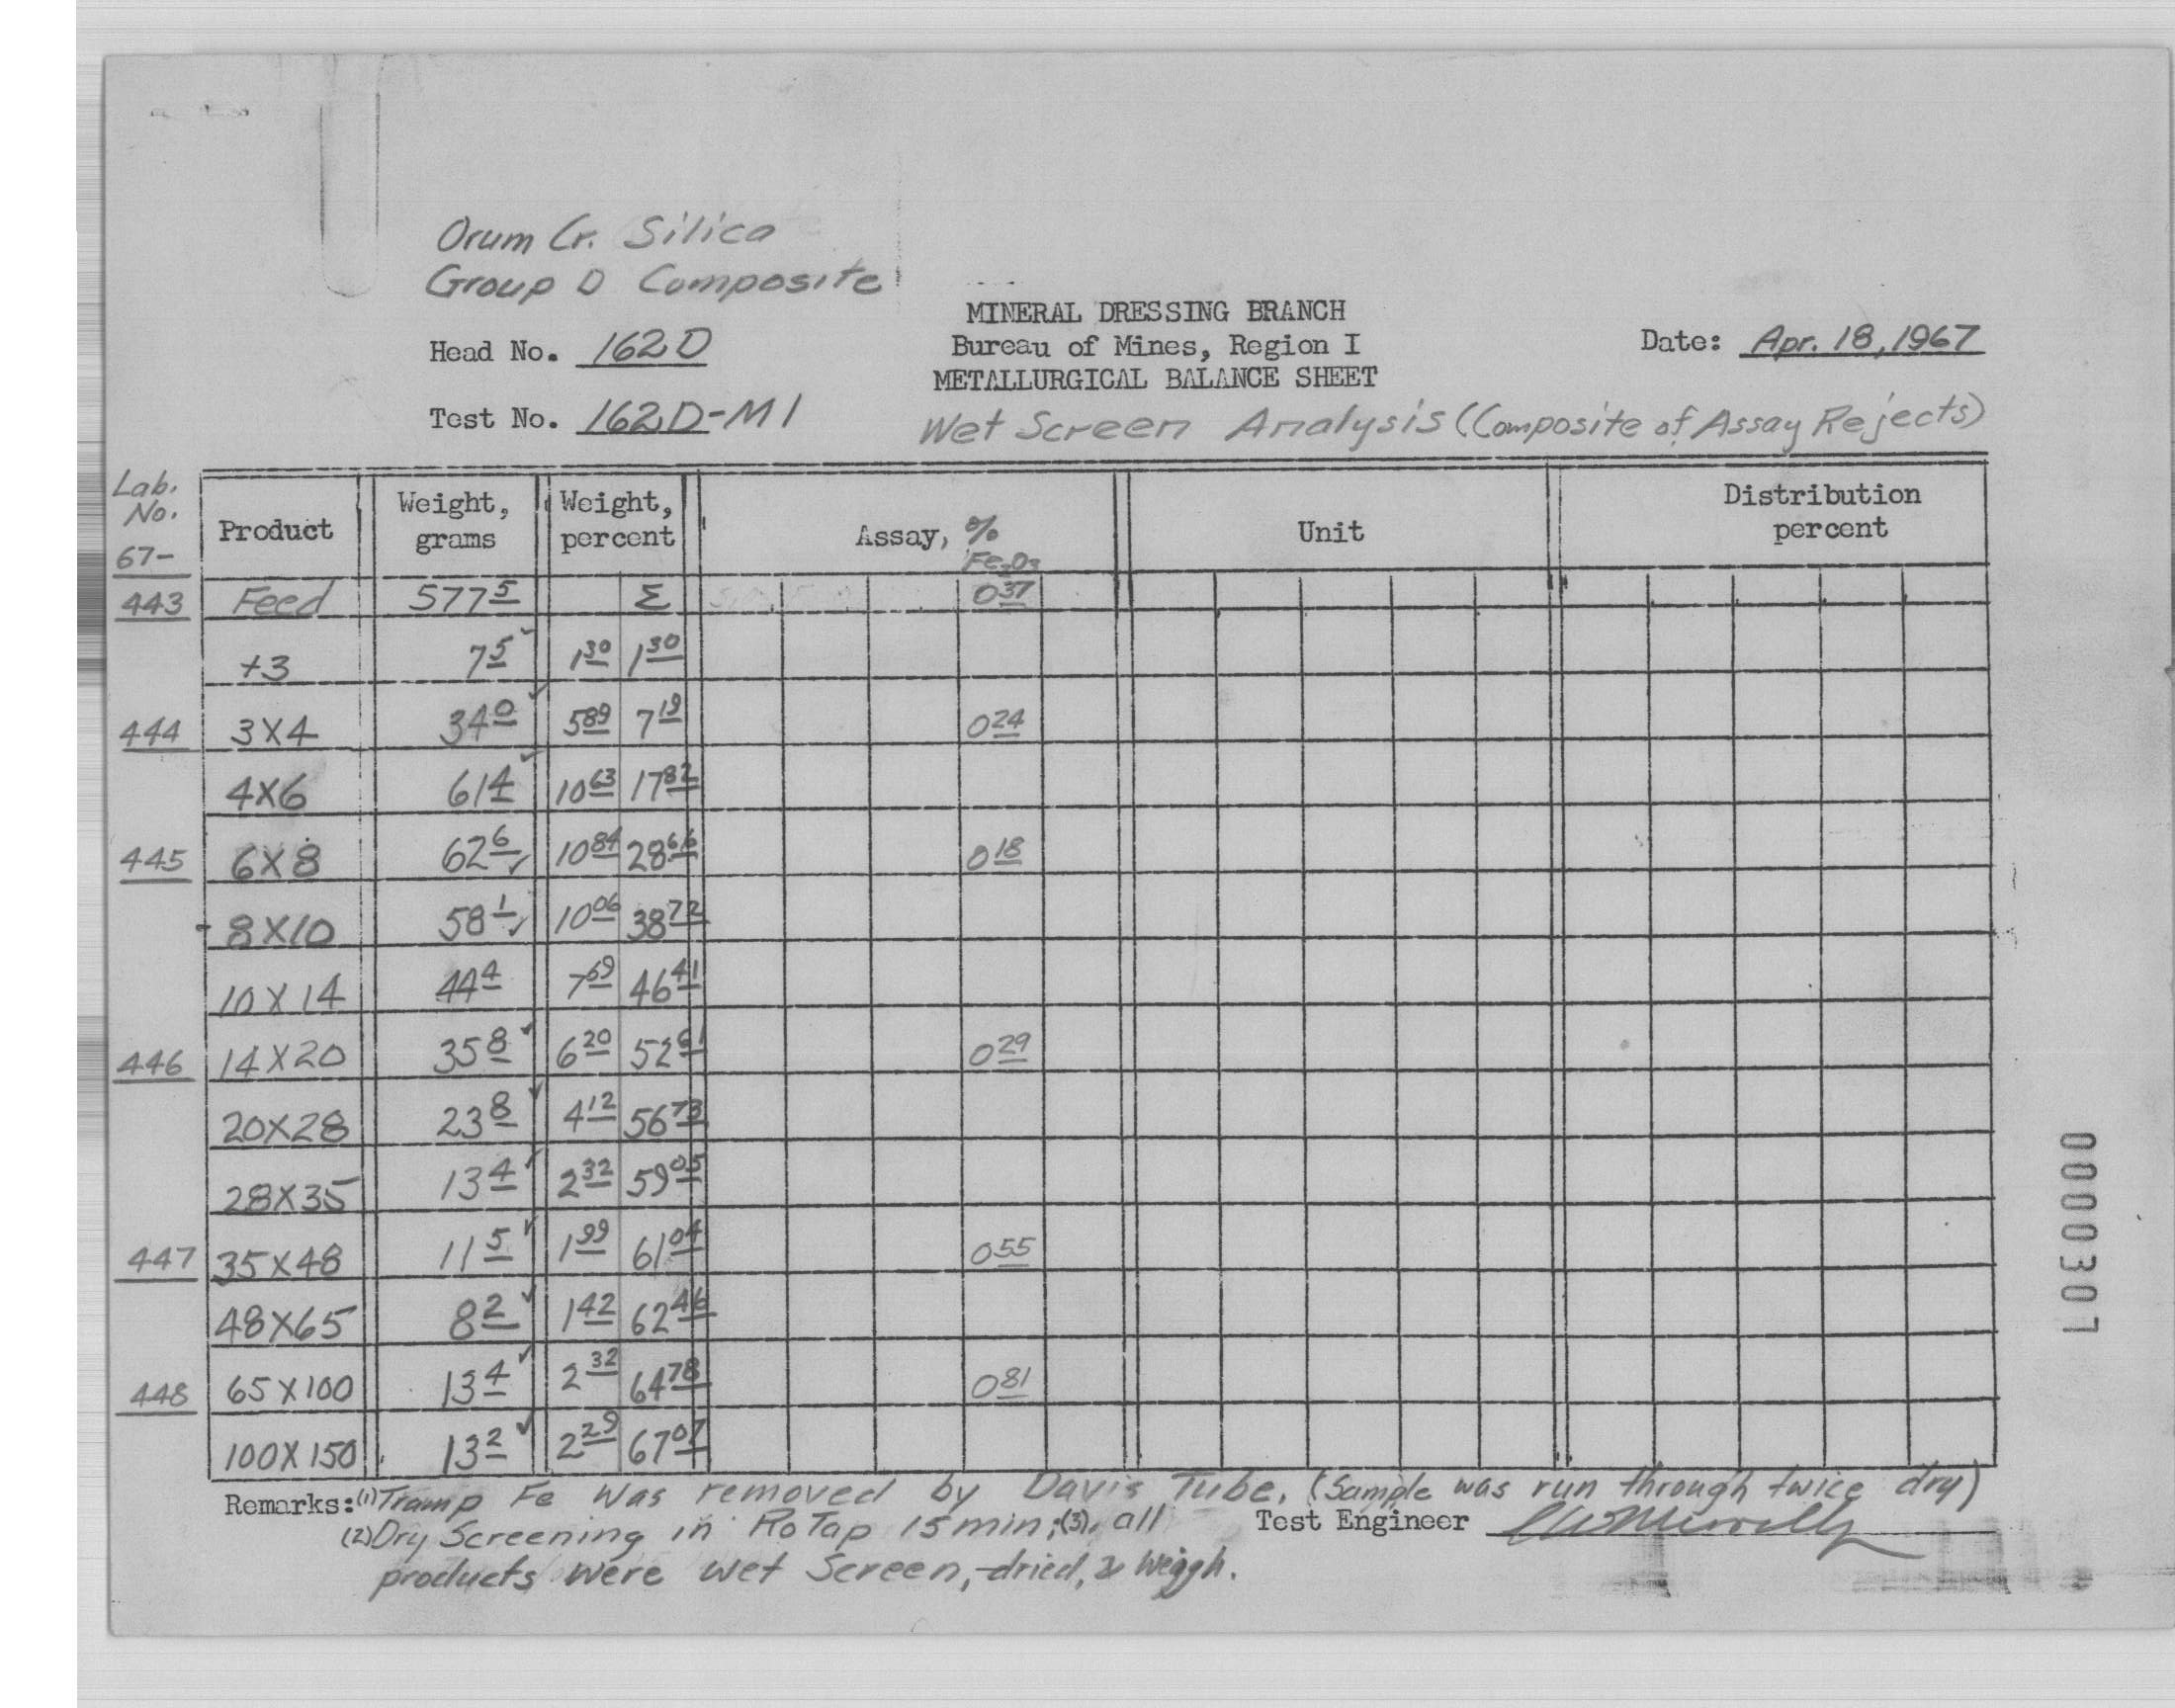 Orum Cr. Silica
Group D Composite
MINERAL DRESSING BRANCH
Head No. 162D Bureau of Mines, Region I Date: Apr. 18, 1967
METALLURGICAL BALANCE SHEET
Test No. 162D-M1 Wet Screen Analysis (Composite of Assay Rejects)
Lab. No. 67- Product Weight, grams Weight, percent Assay, % Fe2O3 Unit Distribution percent
443 Feed 577 5 Σ 0 37
+3 7 5 1 30 1 30
444 3X4 34 0 5 89 7 19 0 24
4X6 61 4 10 63 17 82
445 6X8 62 6 10 84 28 66 0 18
8X10 58 1 10 06 38 72
10X14 44 4 7 69 46 41
446 14X20 35 8 6 20 52 61 0 29
20X28 23 8 4 12 56 73
28X35 13 4 2 32 59 05
447 35X48 11 5 1 99 61 04 0 55
48X65 8 2 1 42 62 46
448 65X100 13 4 2 32 64 78 0 81
100X150 13 2 2 29 67 07
Remarks: (1) Tramp Fe was removed by Davis Tube. (Sample was run through twice dry)
(2) Dry Screening in RoTap 15 min; (3). all Test Engineer
products were wet Screen, dried, & weigh.
0000307